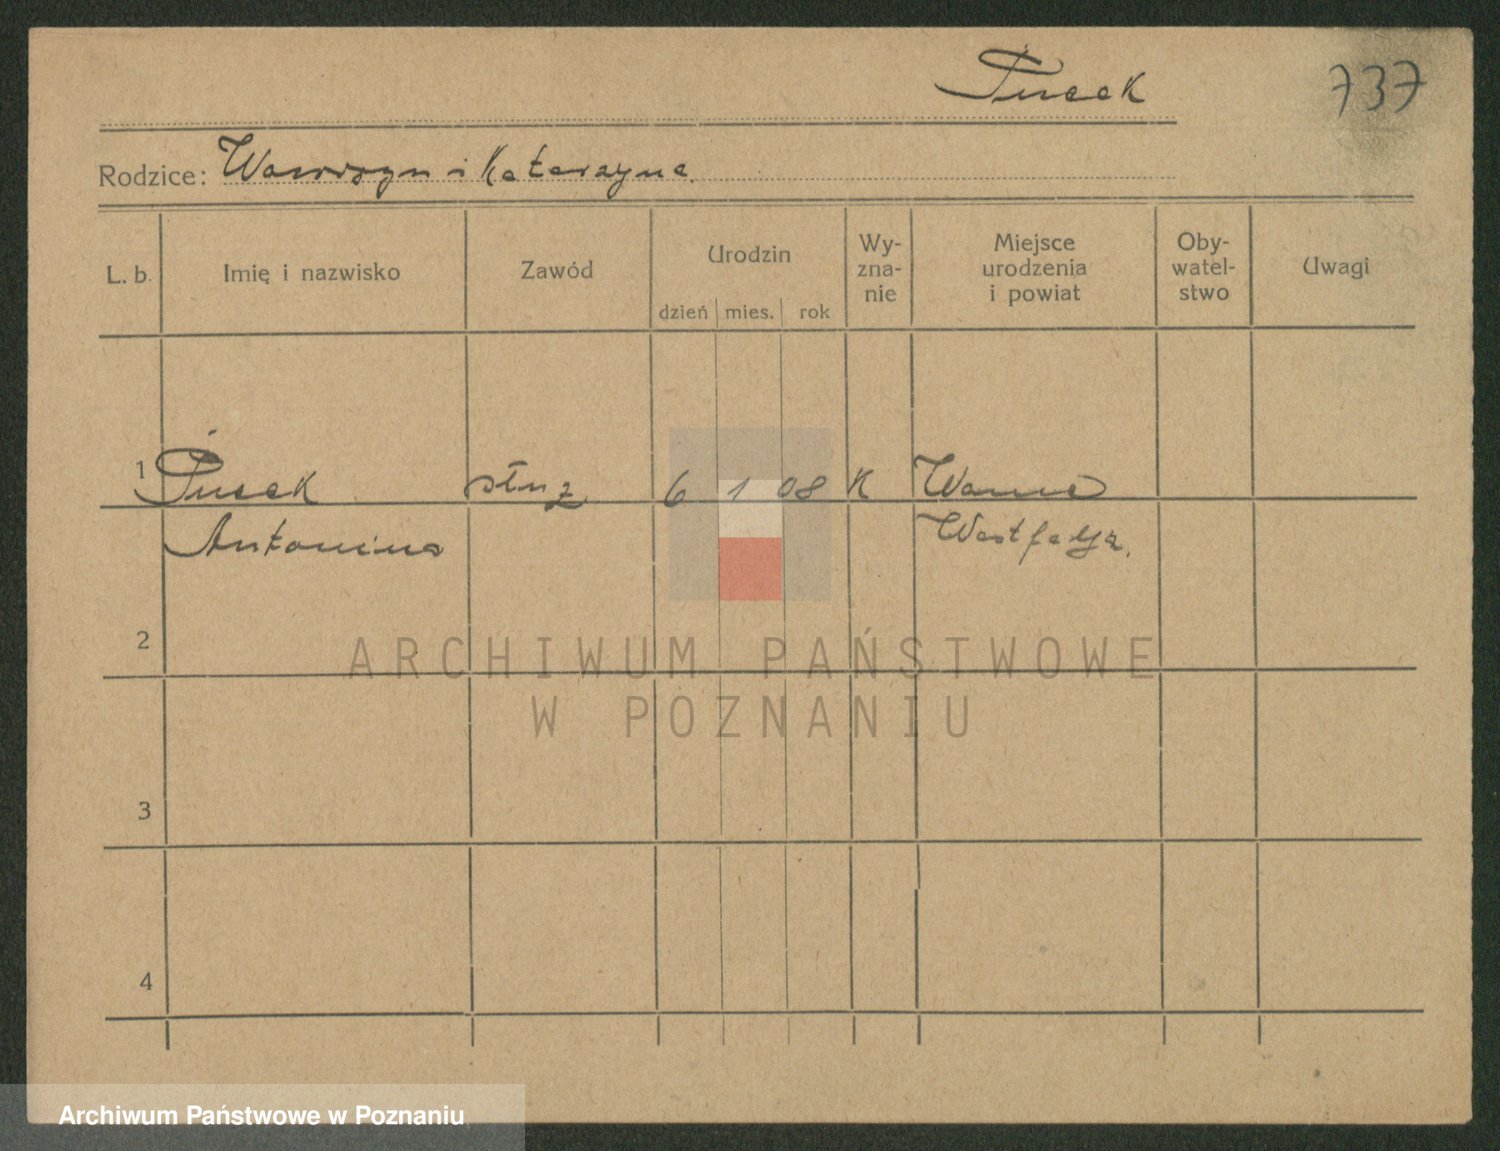 Pusek
737
Rodzice: Wawrzyn i Katarzyna
L. b.
Imię i nazwisko
Zawód
Urodzin
dzień mies. rok
Wy-
zna-
nie
Miejsce
urodzenia
i powiat
Oby-
watel-
stwo
Uwagi
1 Pusek służ 6 1 08 K Wanne
Antonina Westfalja.
2
3
4
ARCHIWUM PAŃSTWOWE
W POZNANIU
Archiwum Państwowe w Poznaniu